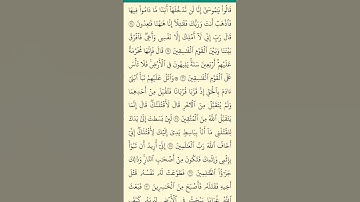 قَالُوا۟ يَـٰمُوسَىٰٓ إِنَّا لَن نَّدْخُلَهَآ أَبَدًا مَّا دَامُوا۟ فِيهَا
فَٱذْهَبْ أَنتَ وَرَبُّكَ فَقَـٰتِلَآ إِنَّا هَـٰهُنَا قَـٰعِدُونَ ۝
قَالَ رَبِّ إِنِّى لَآ أَمْلِكُ إِلَّا نَفْسِى وَأَخِى فَٱفْرُقْ
بَيْنَنَا وَبَيْنَ ٱلْقَوْمِ ٱلْفَـٰسِقِينَ ۝ قَالَ فَإِنَّهَا مُحَرَّمَةٌ
عَلَيْهِمْ أَرْبَعِينَ سَنَةً يَتِيهُونَ فِى ٱلْأَرْضِ فَلَا تَأْسَ
عَلَى ٱلْقَوْمِ ٱلْفَـٰسِقِينَ ۝ ۞ وَٱتْلُ عَلَيْهِمْ نَبَأَ ٱبْنَىْ
ءَادَمَ بِٱلْحَقِّ إِذْ قَرَّبَا قُرْبَانًا فَتُقُبِّلَ مِنْ أَحَدِهِمَا
وَلَمْ يُتَقَبَّلْ مِنَ ٱلْـَٔاخَرِ قَالَ لَأَقْتُلَنَّكَ قَالَ إِنَّمَا
يَتَقَبَّلُ ٱللَّهُ مِنَ ٱلْمُتَّقِينَ ۝ لَئِنۢ بَسَطتَ إِلَىَّ يَدَكَ
لِتَقْتُلَنِى مَآ أَنَا۠ بِبَاسِطٍ يَدِىَ إِلَيْكَ لِأَقْتُلَكَ إِنِّىٓ
أَخَافُ ٱللَّهَ رَبَّ ٱلْعَـٰلَمِينَ ۝ إِنِّىٓ أُرِيدُ أَن تَبُوٓأَ
بِإِثْمِى وَإِثْمِكَ فَتَكُونَ مِنْ أَصْحَـٰبِ ٱلنَّارِ وَذَٰلِكَ
جَزَٰٓؤُا۟ ٱلظَّـٰلِمِينَ ۝ فَطَوَّعَتْ لَهُۥ نَفْسُهُۥ قَتْلَ
أَخِيهِ فَقَتَلَهُۥ فَأَصْبَحَ مِنَ ٱلْخَـٰسِرِينَ ۝ فَبَعَثَ
ٱللَّهُ غُرَابًا يَبْحَثُ فِى ٱلْأَرْضِ لِيُرِيَهُۥ كَيْفَ